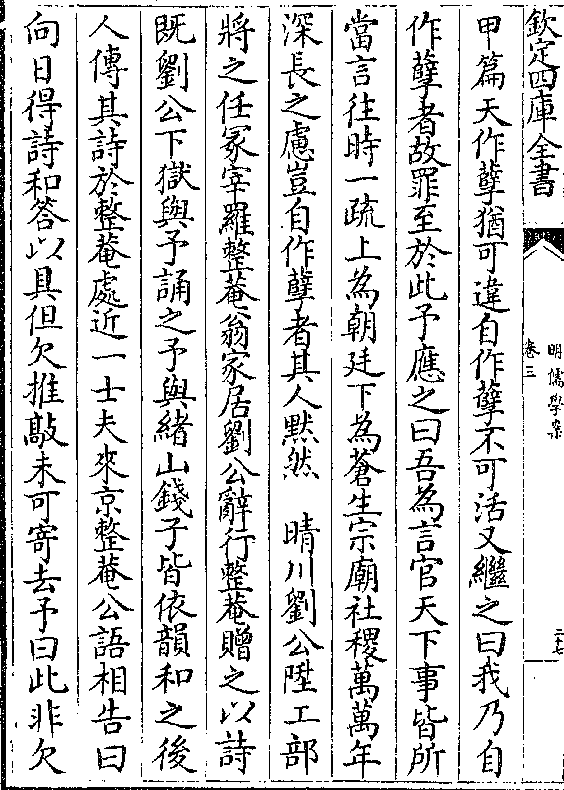 欽定四庫全書
明儒學案
卷三
二十七
甲篇天作孽猶可違自作孽不可活又繼之曰我乃自
作孽者故罪至於此予應之曰吾為言官天下事皆所
當言往時一疏上為朝廷下為蒼生宗廟社稷萬萬年
深長之慮豈自作孽者其人默然　晴川劉公陞工部
將之任冢宰羅整菴翁家居劉公辭行整菴贈之以詩
既劉公下獄與予誦之予與緒山錢子皆依韻和之後
人傳其詩於整菴處近一士夫來京整菴公語相告曰
向日得詩和答以具但欠推敲未可寄去予曰此非欠